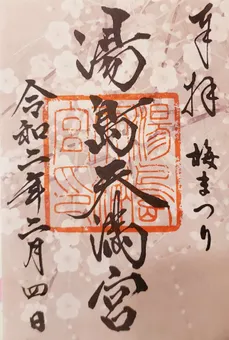 奉拝 梅まつり
湯島天満宮
令和二年二月四日